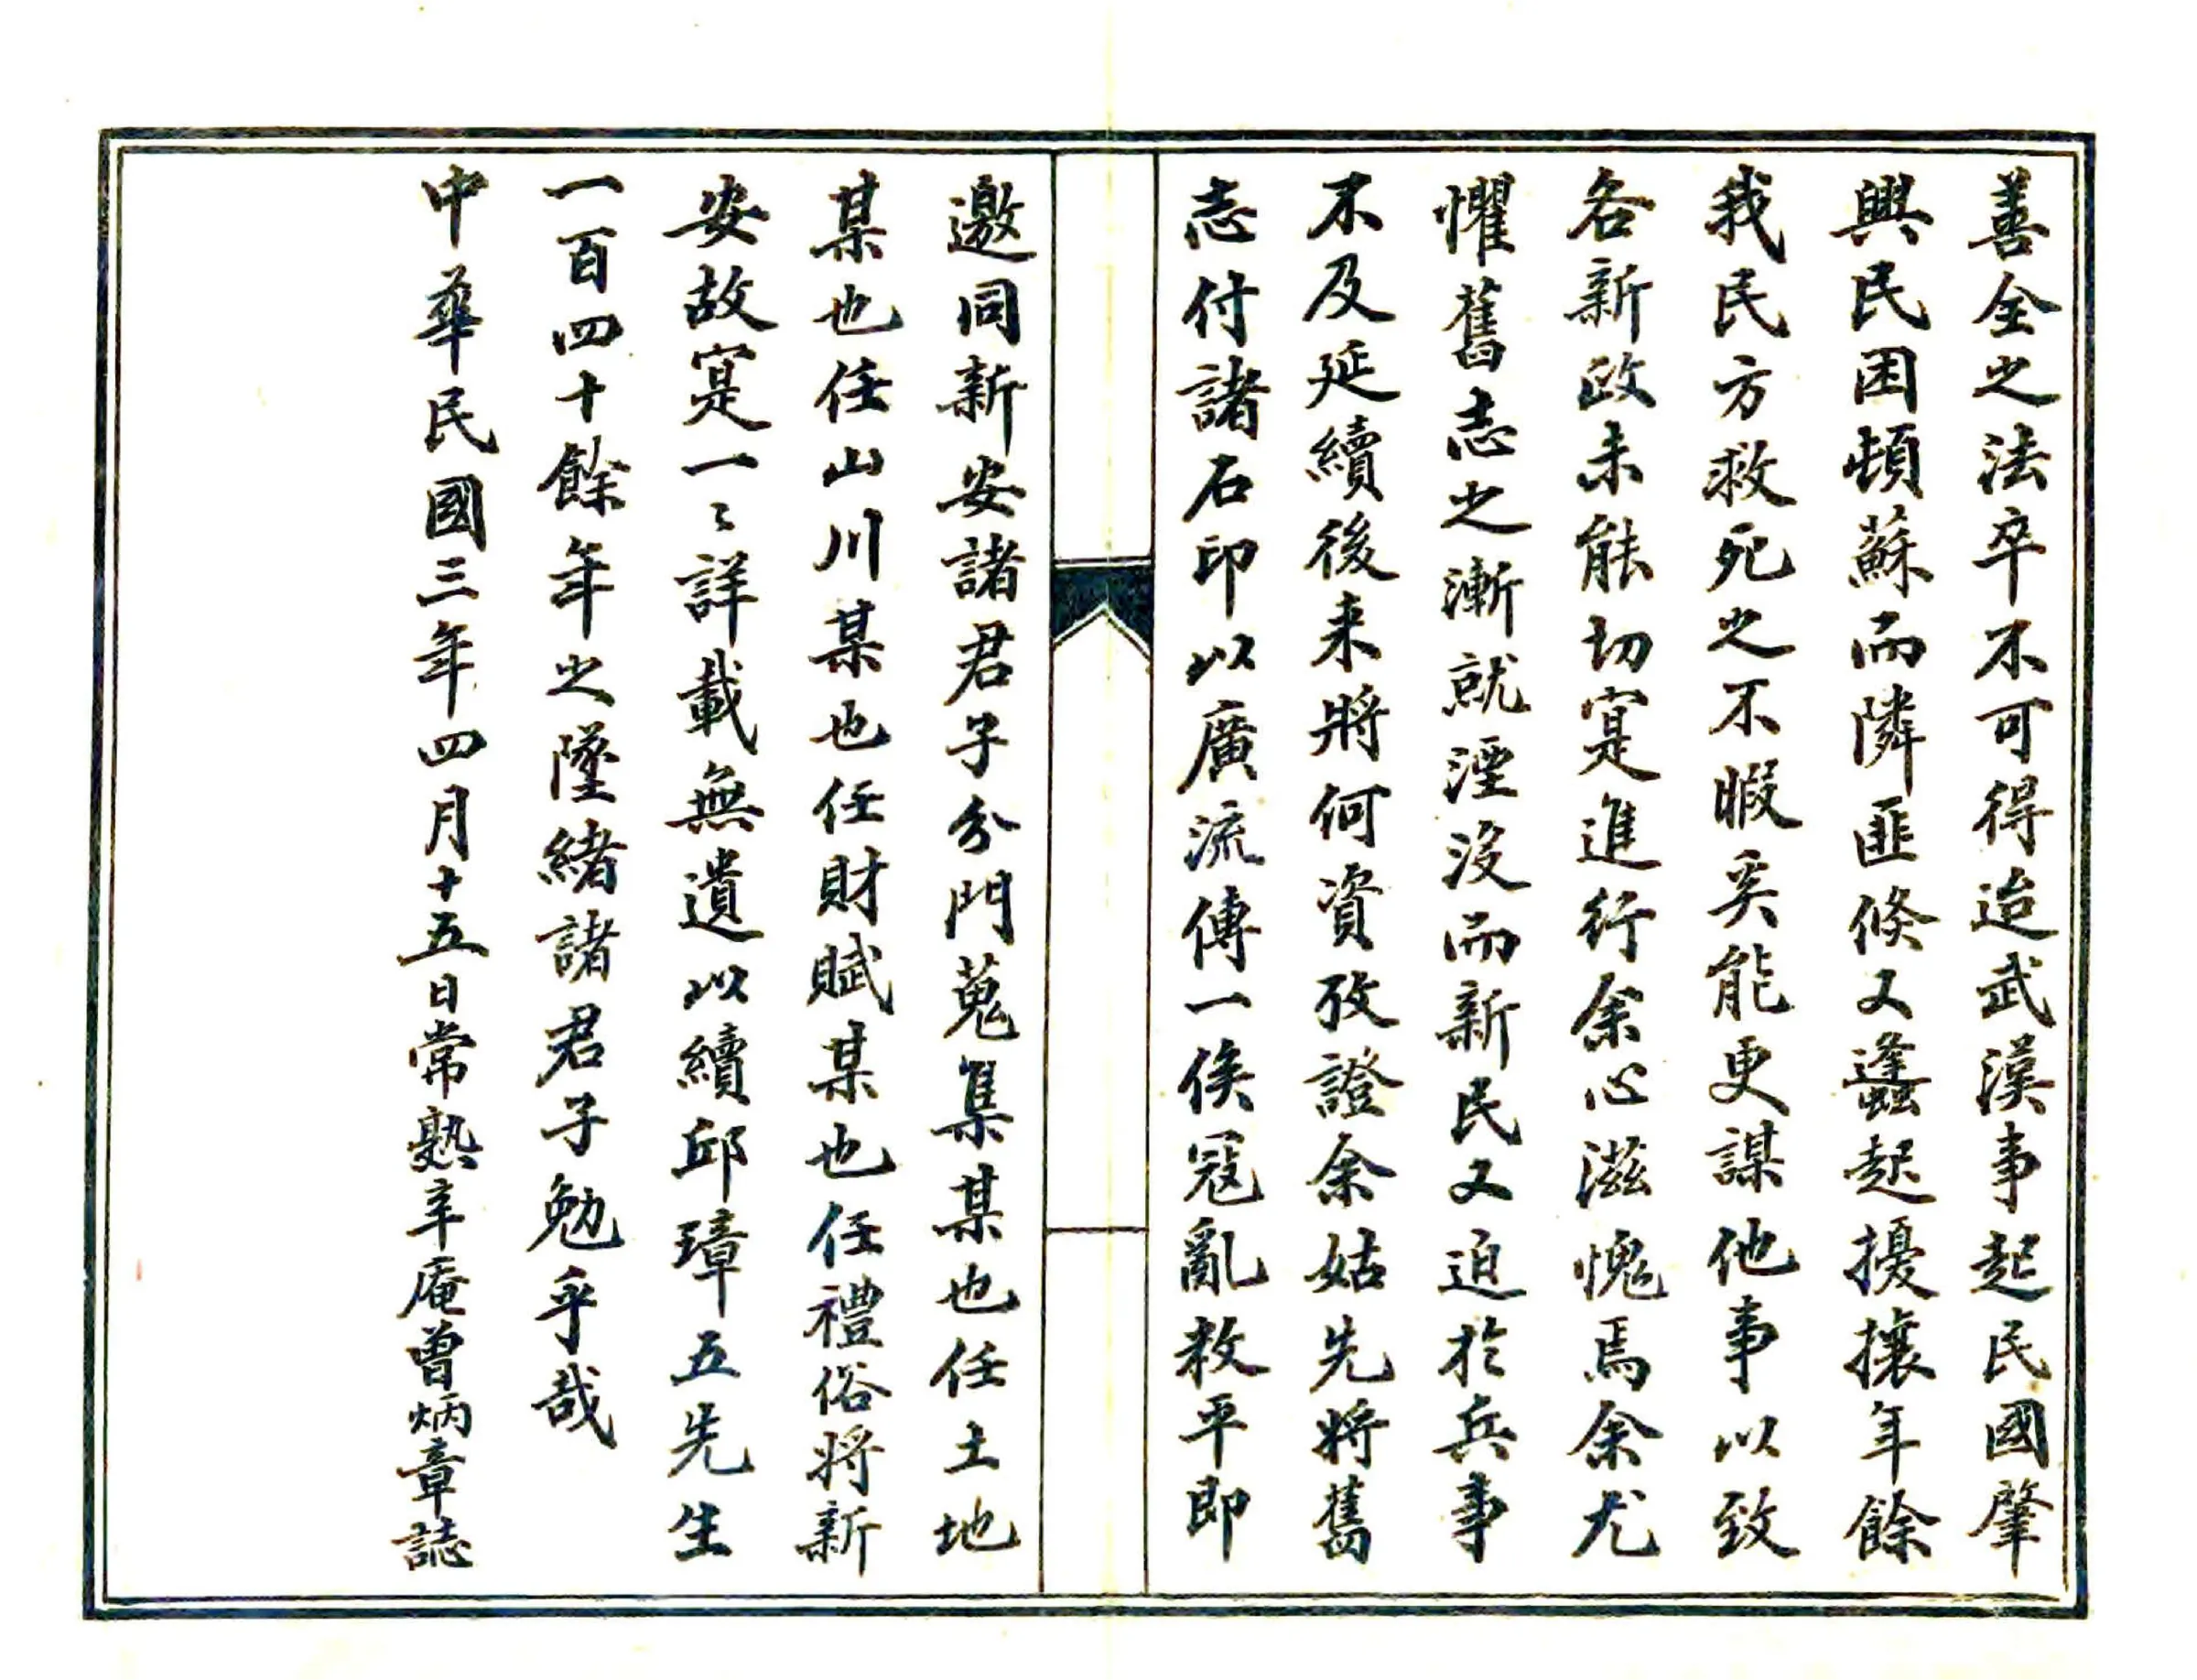 善全之法卒不可得迨武漢事起民國肇
興民困頓蘇而隣匪倏又蠭起擾攘年餘
我民方救死之不暇奚能更謀他事以致
各新政未能切寔進行余心滋愧焉余尤
懼舊志之漸就湮没而新民又迫於兵事
不及延續後来將何資攷證余姑先將舊
志付諸石印以廣流傳一俟寇亂敉平即
邀同新安諸君子分門蒐集某也任土地
某也任山川某也任財賦某也任禮俗將新
安故寔一〻詳載無遺以續邱璋五先生
一百四十餘年之墜緒諸君子勉乎哉
中華民國三年四月十五日常熟辛庵曾炳章誌